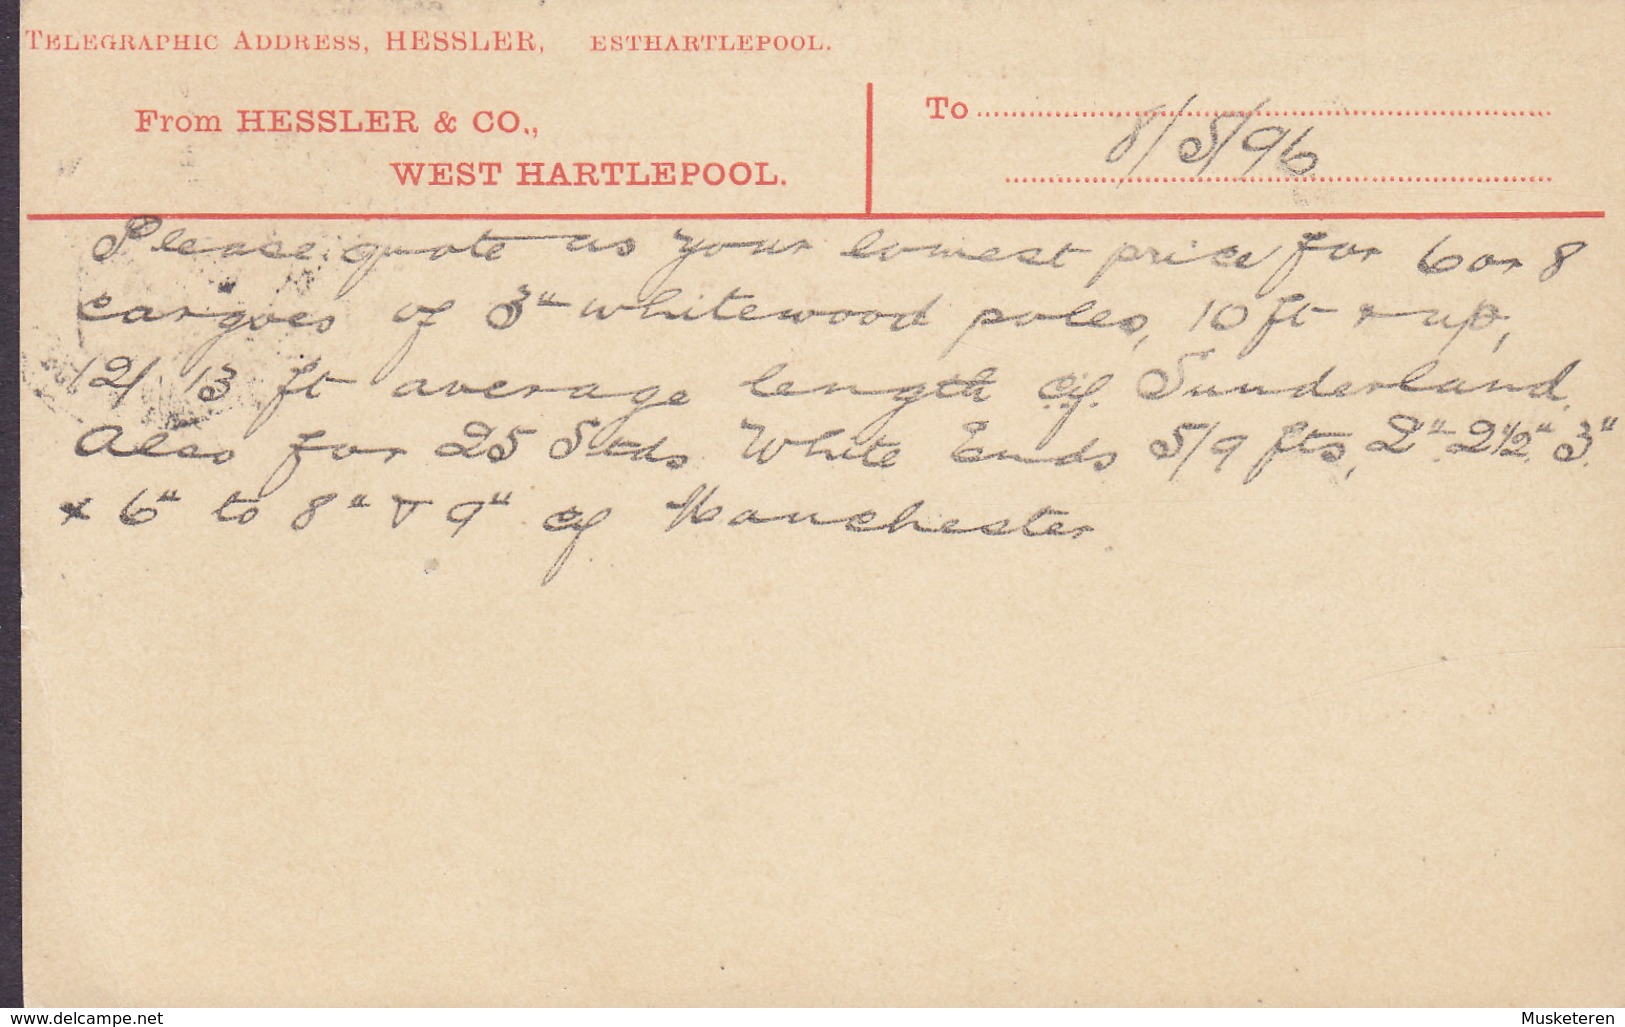 TELEGRAPHIC ADDRESS, HESSLER, ESTHARTLEPOOL.
From HESSLER & CO.,
WEST HARTLEPOOL.
To
8/5/96
Please quote us your lowest price for 6 or 8
cargoes of 3" whitewood poles, 10 ft & up,
12/13 ft average length cif. Sunderland.
Also for 25 Stds White Ends 5/9 fts, 2" 2 1/2" 3"
x 6" to 8" & 9" cif Manchester
www.delcampe.net
Musketeren